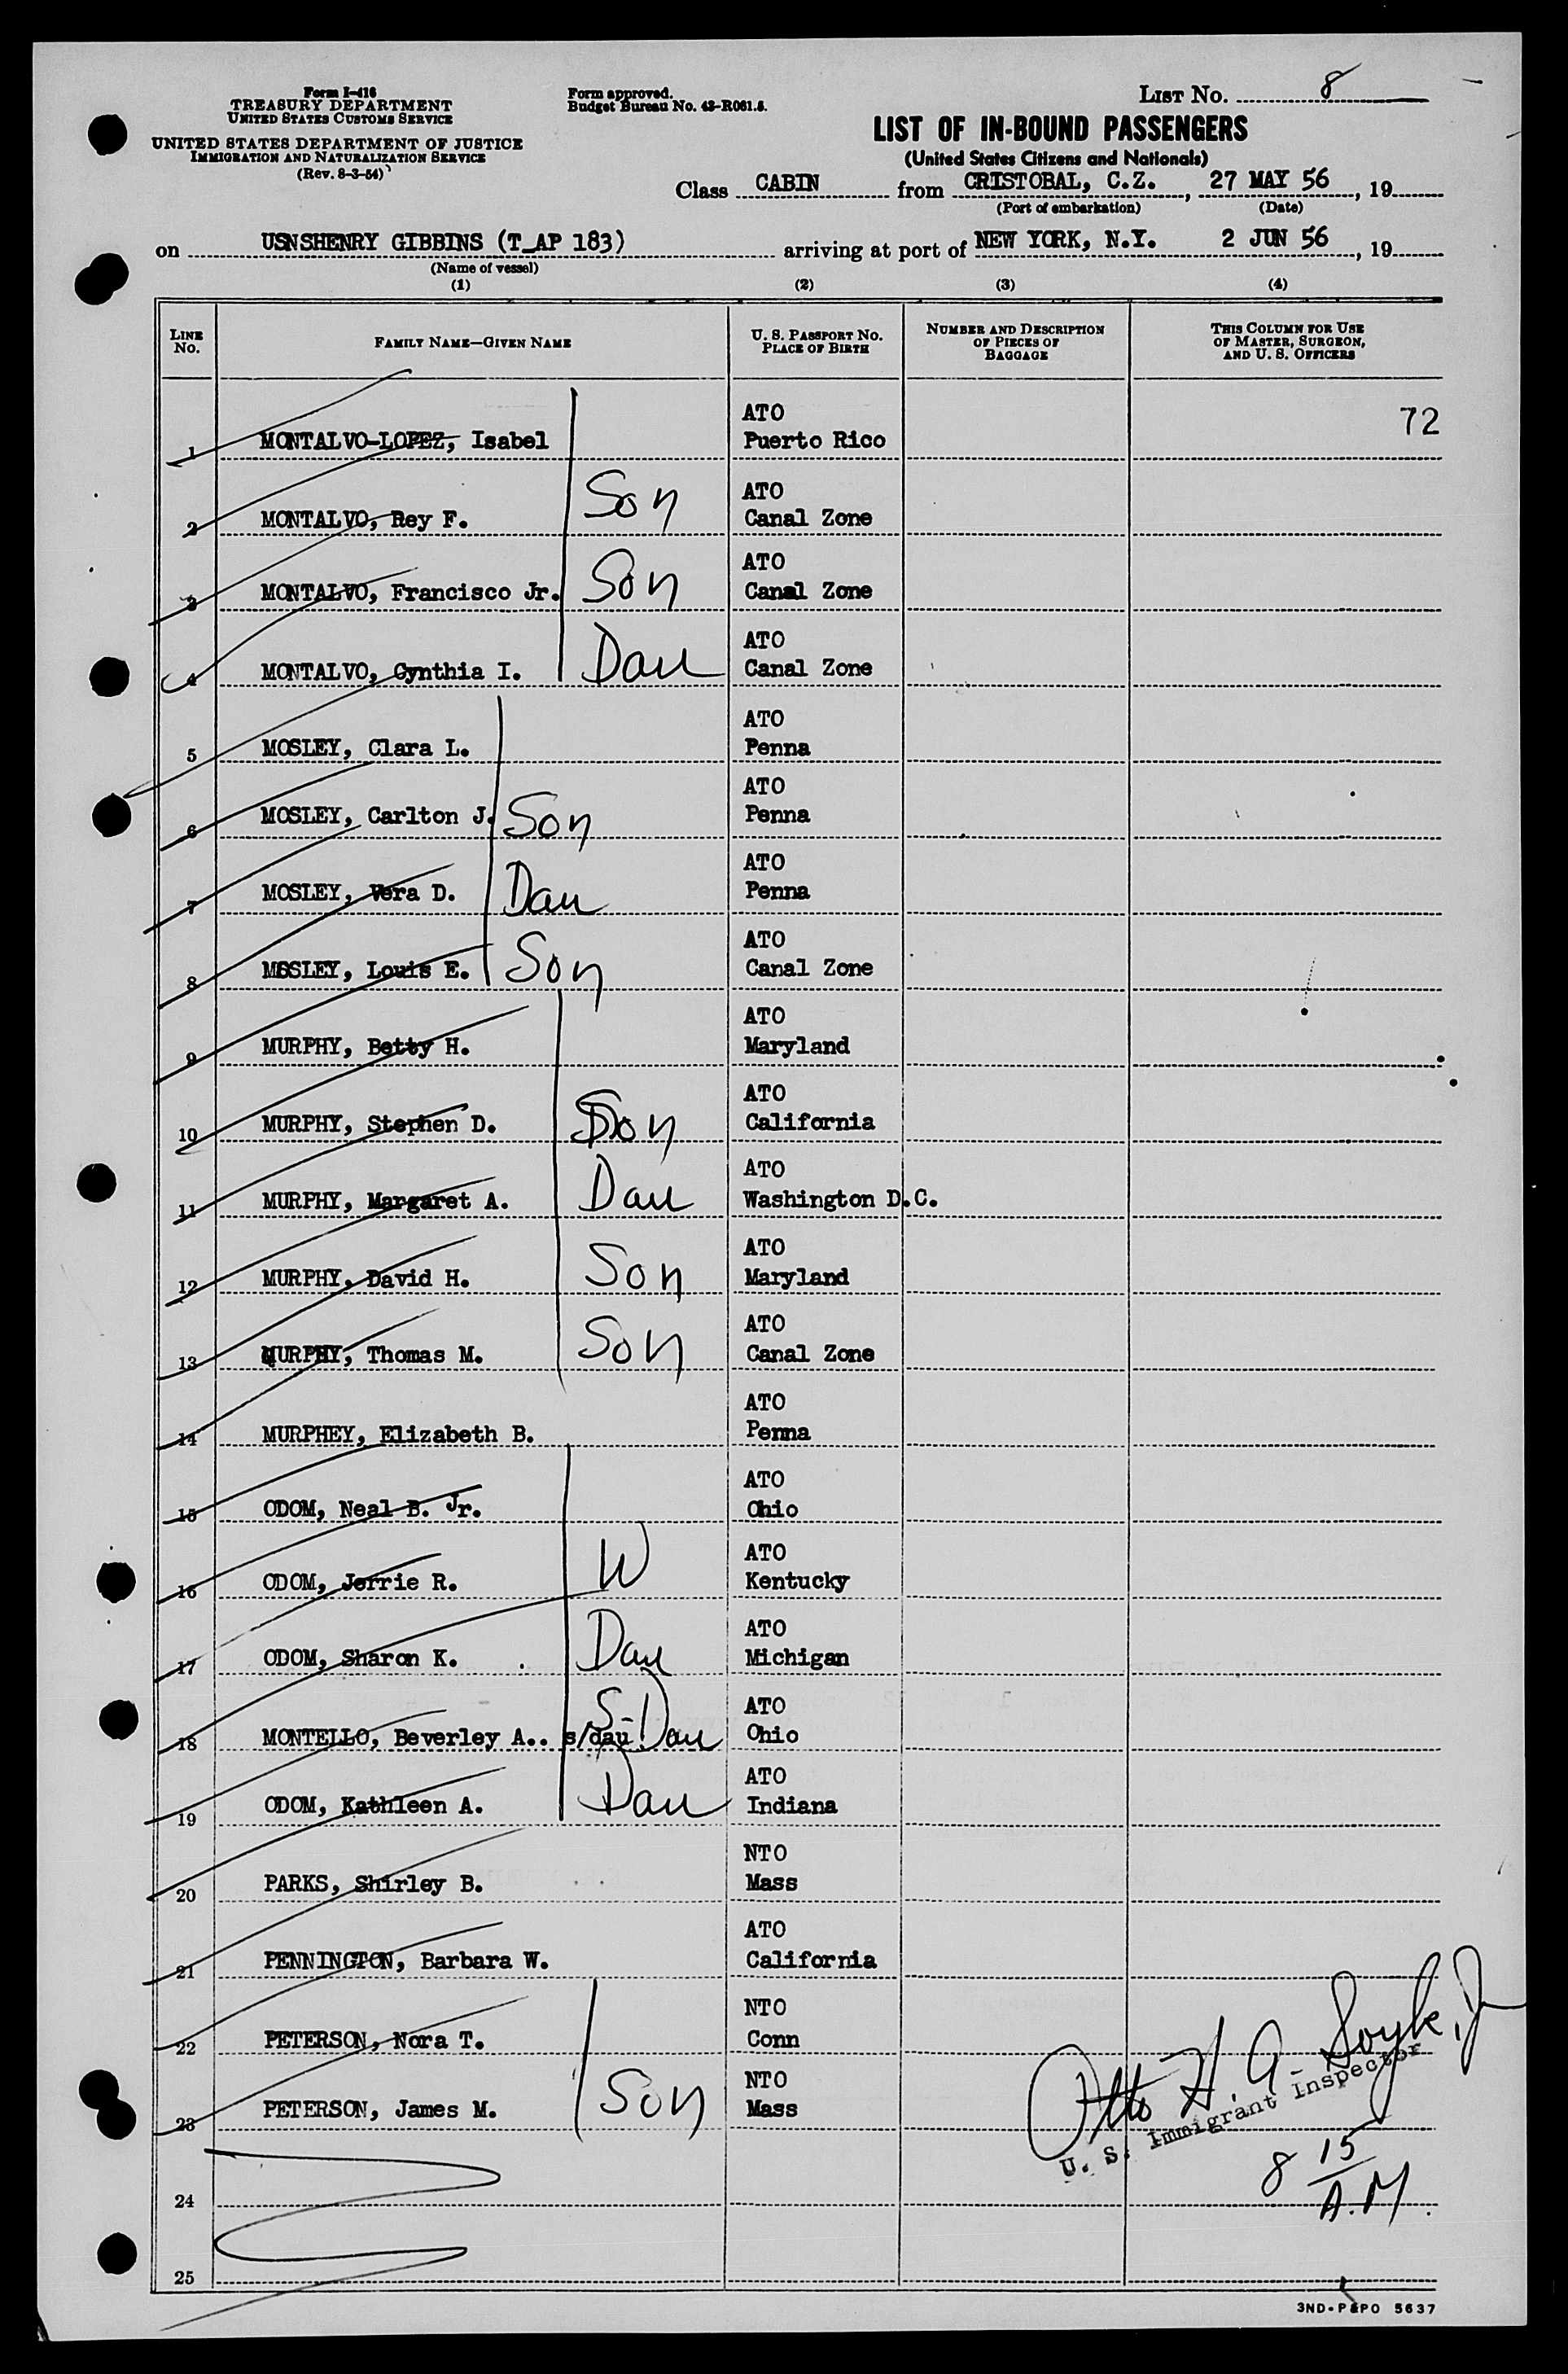 Form I-416
TREASURY DEPARTMENT
UNITED STATES CUSTOMS SERVICE
UNITED STATES DEPARTMENT OF JUSTICE
IMMIGRATION AND NATURALIZATION SERVICE
(Rev. 8-3-54)
Form approved.
Budget Bureau No. 43-R061.5.
LIST No. 8
LIST OF IN-BOUND PASSENGERS
(United States Citizens and Nationals)
Class CABIN from CRISTOBAL, C.Z., 27 MAY 56, 19
(Port of embarkation) (Date)
on USNSHENRY GIBBINS (T_AP 183) arriving at port of NEW YORK, N.Y. 2 JUN 56, 19
(Name of vessel)
(1) (2) (3) (4)
LINE No. FAMILY NAME—GIVEN NAME U. S. PASSPORT NO. PLACE OF BIRTH NUMBER AND DESCRIPTION OF PIECES OF BAGGAGE THIS COLUMN FOR USE OF MASTER, SURGEON, AND U. S. OFFICERS
ATO 72
1 MONTALVO-LOPEZ, Isabel Puerto Rico
ATO
2 MONTALVO, Rey F. Son Canal Zone
ATO
3 MONTALVO, Francisco Jr. Son Canal Zone
ATO
4 MONTALVO, Cynthia I. Dau Canal Zone
ATO
5 MOSLEY, Clara L. Penna
ATO
6 MOSLEY, Carlton J. Son Penna
ATO
7 MOSLEY, Vera D. Dau Penna
ATO
8 MOSLEY, Louis E. Son Canal Zone
ATO
9 MURPHY, Betty H. Maryland
ATO
10 MURPHY, Stephen D. Son California
ATO
11 MURPHY, Margaret A. Dau Washington D.C.
ATO
12 MURPHY, David H. Son Maryland
ATO
13 MURPHY, Thomas M. Son Canal Zone
ATO
14 MURPHEY, Elizabeth B. Penna
ATO
15 ODOM, Neal B. Jr. Ohio
ATO
16 ODOM, Jerrie R. W Kentucky
ATO
17 ODOM, Sharon K. Dau Michigan
ATO
18 MONTELLO, Beverley A.. s/dau S-Dau Ohio
ATO
19 ODOM, Kathleen A. Dau Indiana
NTO
20 PARKS, Shirley B. Mass
ATO
21 PENNINGTON, Barbara W. California
NTO
22 PETERSON, Nora T. Conn
NTO
23 PETERSON, James M. Son Mass
Otto H. A.
U. S. Immigrant Inspector
8 15 A.M.
24
25
3ND-P&PO 5637